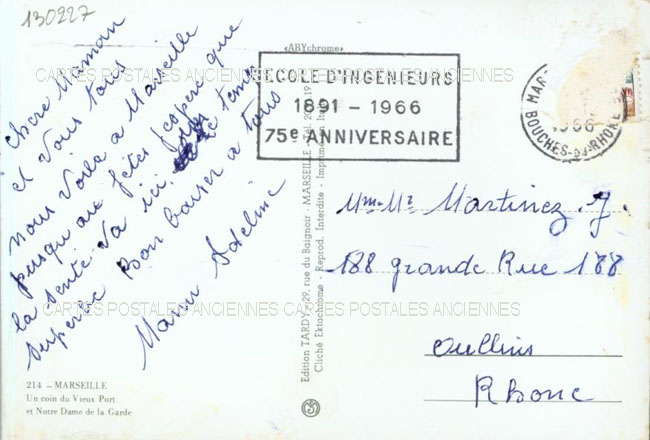 130227
«ARYchrome»
ECOLE D'INGENIEURS
1891 - 1966
75e ANNIVERSAIRE
MAR
1966
BOUCHES-DU-RHONE
CARTES POSTALES ANCIENNES CARTES POSTALES ANCIENNES
chère Maman
et vous tous
nous voilà a Marseille
jusqu au fêtes j'espère que
la senté va ici le temp
superbe Bon baiser a tous
Manu Adeline
Mme Mr Martinez. J.
188 grande Rue 188
Oullins
Rhone
CARTES POSTALES ANCIENNES CARTES POSTALES ANCIENNES
Edition TARDY - 29, rue du Baignoir - MARSEILLE - Tél. 20
Cliché Ektachrome - Reprod. Interdite - Imprimé en
214 - MARSEILLE
Un coin du Vieux Port
et Notre Dame de la Garde